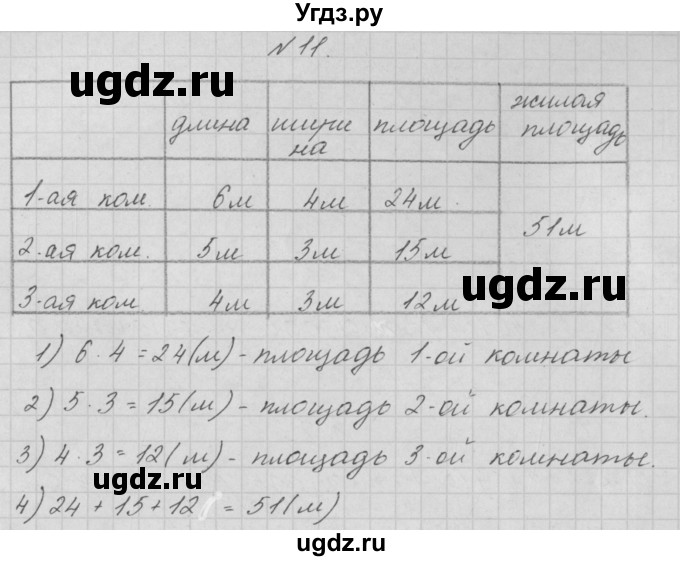 Угдз.ру
N 11.
ugdz.ru
длина ширина площадь жилая площадь
1-ая ком. 6м 4м 24м 51м
2-ая ком. 5м 3м 15м
3-ая ком. 4м 3м 12м
ugdz.ru
1) 6 · 4 = 24(м) - площадь 1-ой комнаты
2) 5 · 3 = 15(м) - площадь 2-ой комнаты.
3) 4 · 3 = 12(м) - площадь 3-ой комнаты.
ugdz.ru
4) 24 + 15 + 12 = 51(м)
ugdz.ru
ugdz.ru